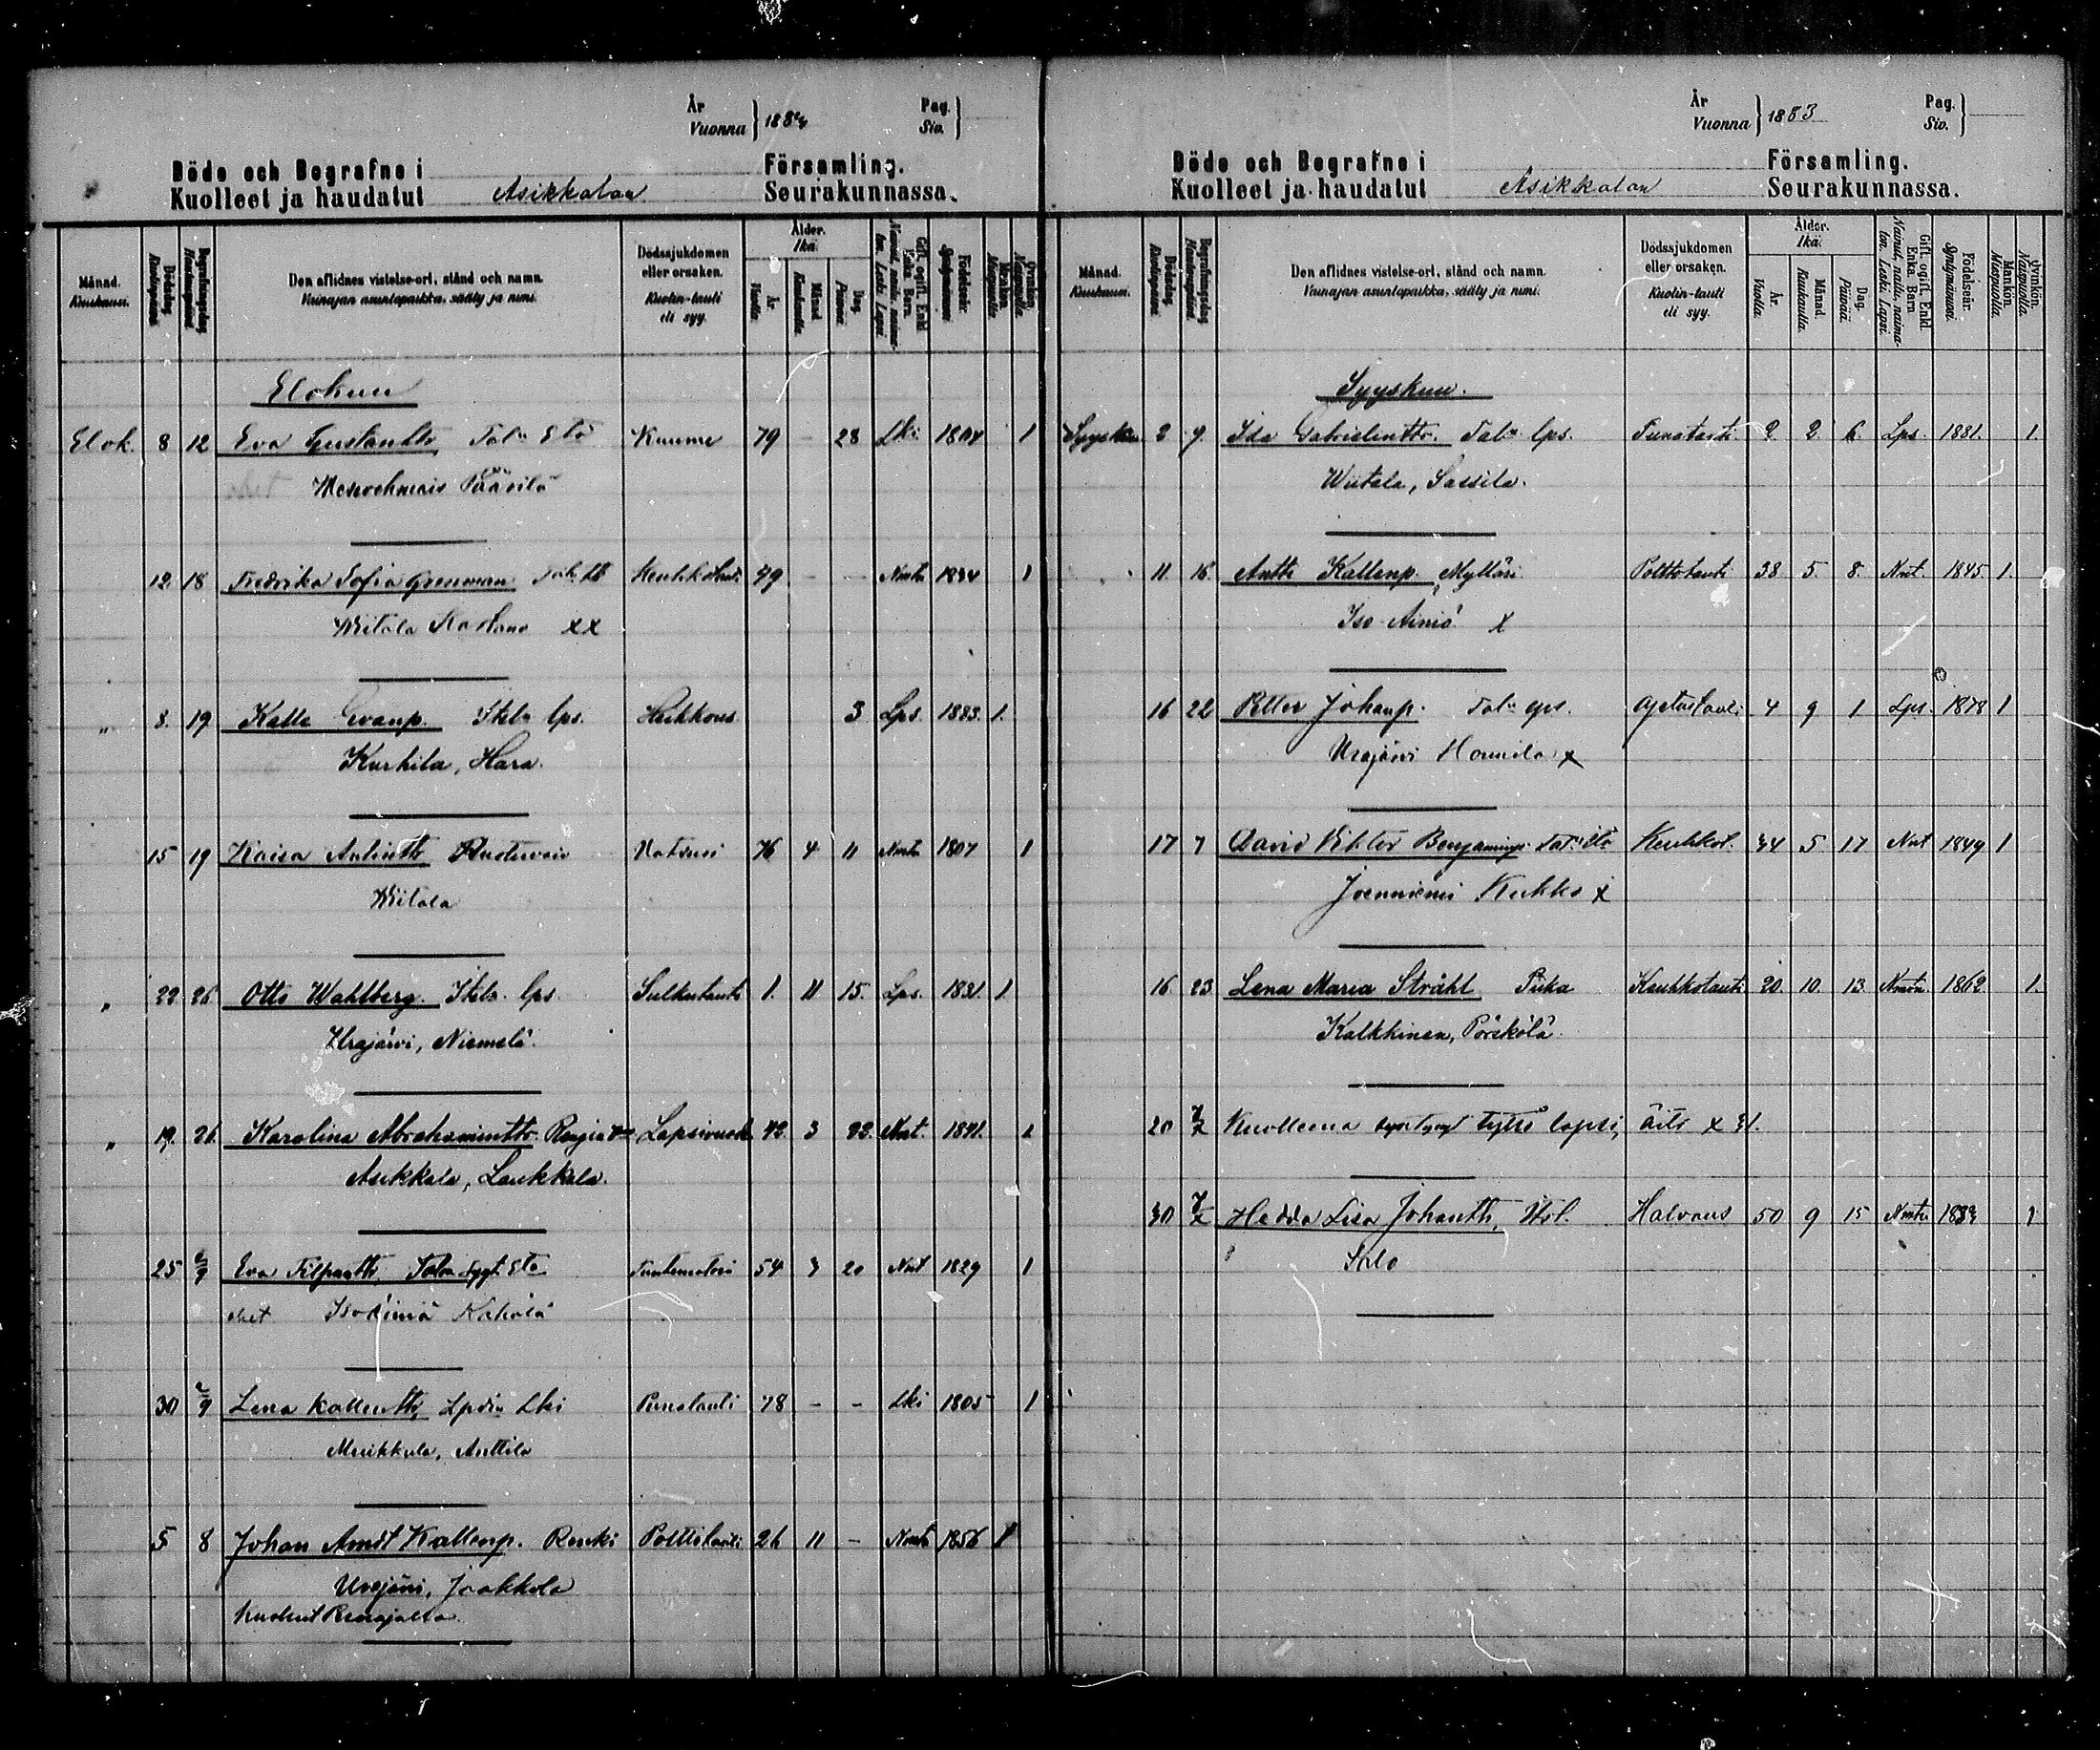 År
Vuonna } 1883
Pag.
Siv. }
Döde och Begrafne i Församling.
Kuolleet ja haudatut Asikkalan Seurakunnassa.
Månad. Kuukausi.
Dödsdag. Kuolinpäivä.
Begrafningsdag. Hautauspäivä.
Den aflidnes vistelse-ort, stånd och namn.
Vainajan asuntopaikka, sääty ja nimi.
Dödssjukdomen eller orsaken.
Kuolin-tauti eli syy.
Ålder. Ikä.
År. Vuotta.
Månad. Kuukautta.
Dag. Päivää.
Gift, ogift, Enkl. Enka, Barn.
Nainut, nailu, naimaton, Leski, Lapsi.
Födelseår. Syntymävuosi.
Mankön. Miespuolia.
Qvinkön. Naispuolia.
Elokuu
Elok. 8 12 Eva Gustantr, Tal: Kuume 79 - 28 Lki 1804 1
Päärilä
12 18 Fredrika Sofia Grenman Keuhkotauti 49 - - 1834 1
Wiitala xx
„ 8. 19 Kalle Evanp. Itsls lps. Heikkous 3 Lps. 1883. 1.
Kurhila, Hara.
15 19 Kaisa Antintr 76 4 11 1807 1
Wiitala
„ 22 26 Otto Wahlberg. Itsls. lps. Sulkutauti 1. 11 15. Lps. 1881. 1
Urajärvi, Niemelä.
„ 19. 26. Karolina Abrahamintr. Lapsivuode 42. 3 23. Nut. 1841. 1
Asikkala, Laukkala.
25 2/9 Eva Filpuntr, 54 3 20 Nut 1829 1
Kahola
30 2/9 Lena Kallentr, Lki Punatauti 78 - - Lki 1805 1
Muikkula, Anttila
5 8 Johan Kallenp. Renki Polttotauti 26 11 - 1856 1
Urajärvi, Jaakkola
År
Vuonna } 1883
Pag.
Siv. }
Döde och Begrafne i Församling.
Kuolleet ja haudatut Asikkalan Seurakunnassa.
Månad. Kuukausi.
Dödsdag. Kuolinpäivä.
Begrafningsdag. Hautauspäivä.
Den aflidnes vistelse-ort, stånd och namn.
Vainajan asuntopaikka, sääty ja nimi.
Dödssjukdomen eller orsaken.
Kuolin-tauti eli syy.
Ålder. Ikä.
År. Vuotta.
Månad. Kuukautta.
Dag. Päivää.
Gift, ogift, Enkl. Enka, Barn.
Nainut, nailu, naimaton, Leski, Lapsi.
Födelseår. Syntymävuosi.
Mankön. Miespuolia.
Qvinkön. Naispuolia.
Syyskuu.
Syyskuu 2 9 Ida Gabrielintr. Tal: lps. Punatauti 2. 2. 6. Lps. 1881. 1.
Wiitala, Sassila.
11. 16. Antti Kallenp. Mylläri Polttotauti 38 5. 8. Nut. 1845 1.
Iso-Äiniö x
16 22 Petter Johanp. Tal: lps. Ajetustauti 4 9 1 Lps. 1878 1
Urajärvi x
17 7 David Viktor Benjaminp. Keuhkot. 34 5 17 Nut 1849 1
Joenniemi Kukko x
16 23 Lena Maria Stråhl Piika Keuhkotauti 20. 10. 13. 1862 1.
Kalkkinen, Pöräkölä.
20 Kuolleena syntynyt tyttö lapsi, äiti x
30 Hedda Lisa Johantr, Itsl. Halvaus 50 9 15 1833 1
Salo